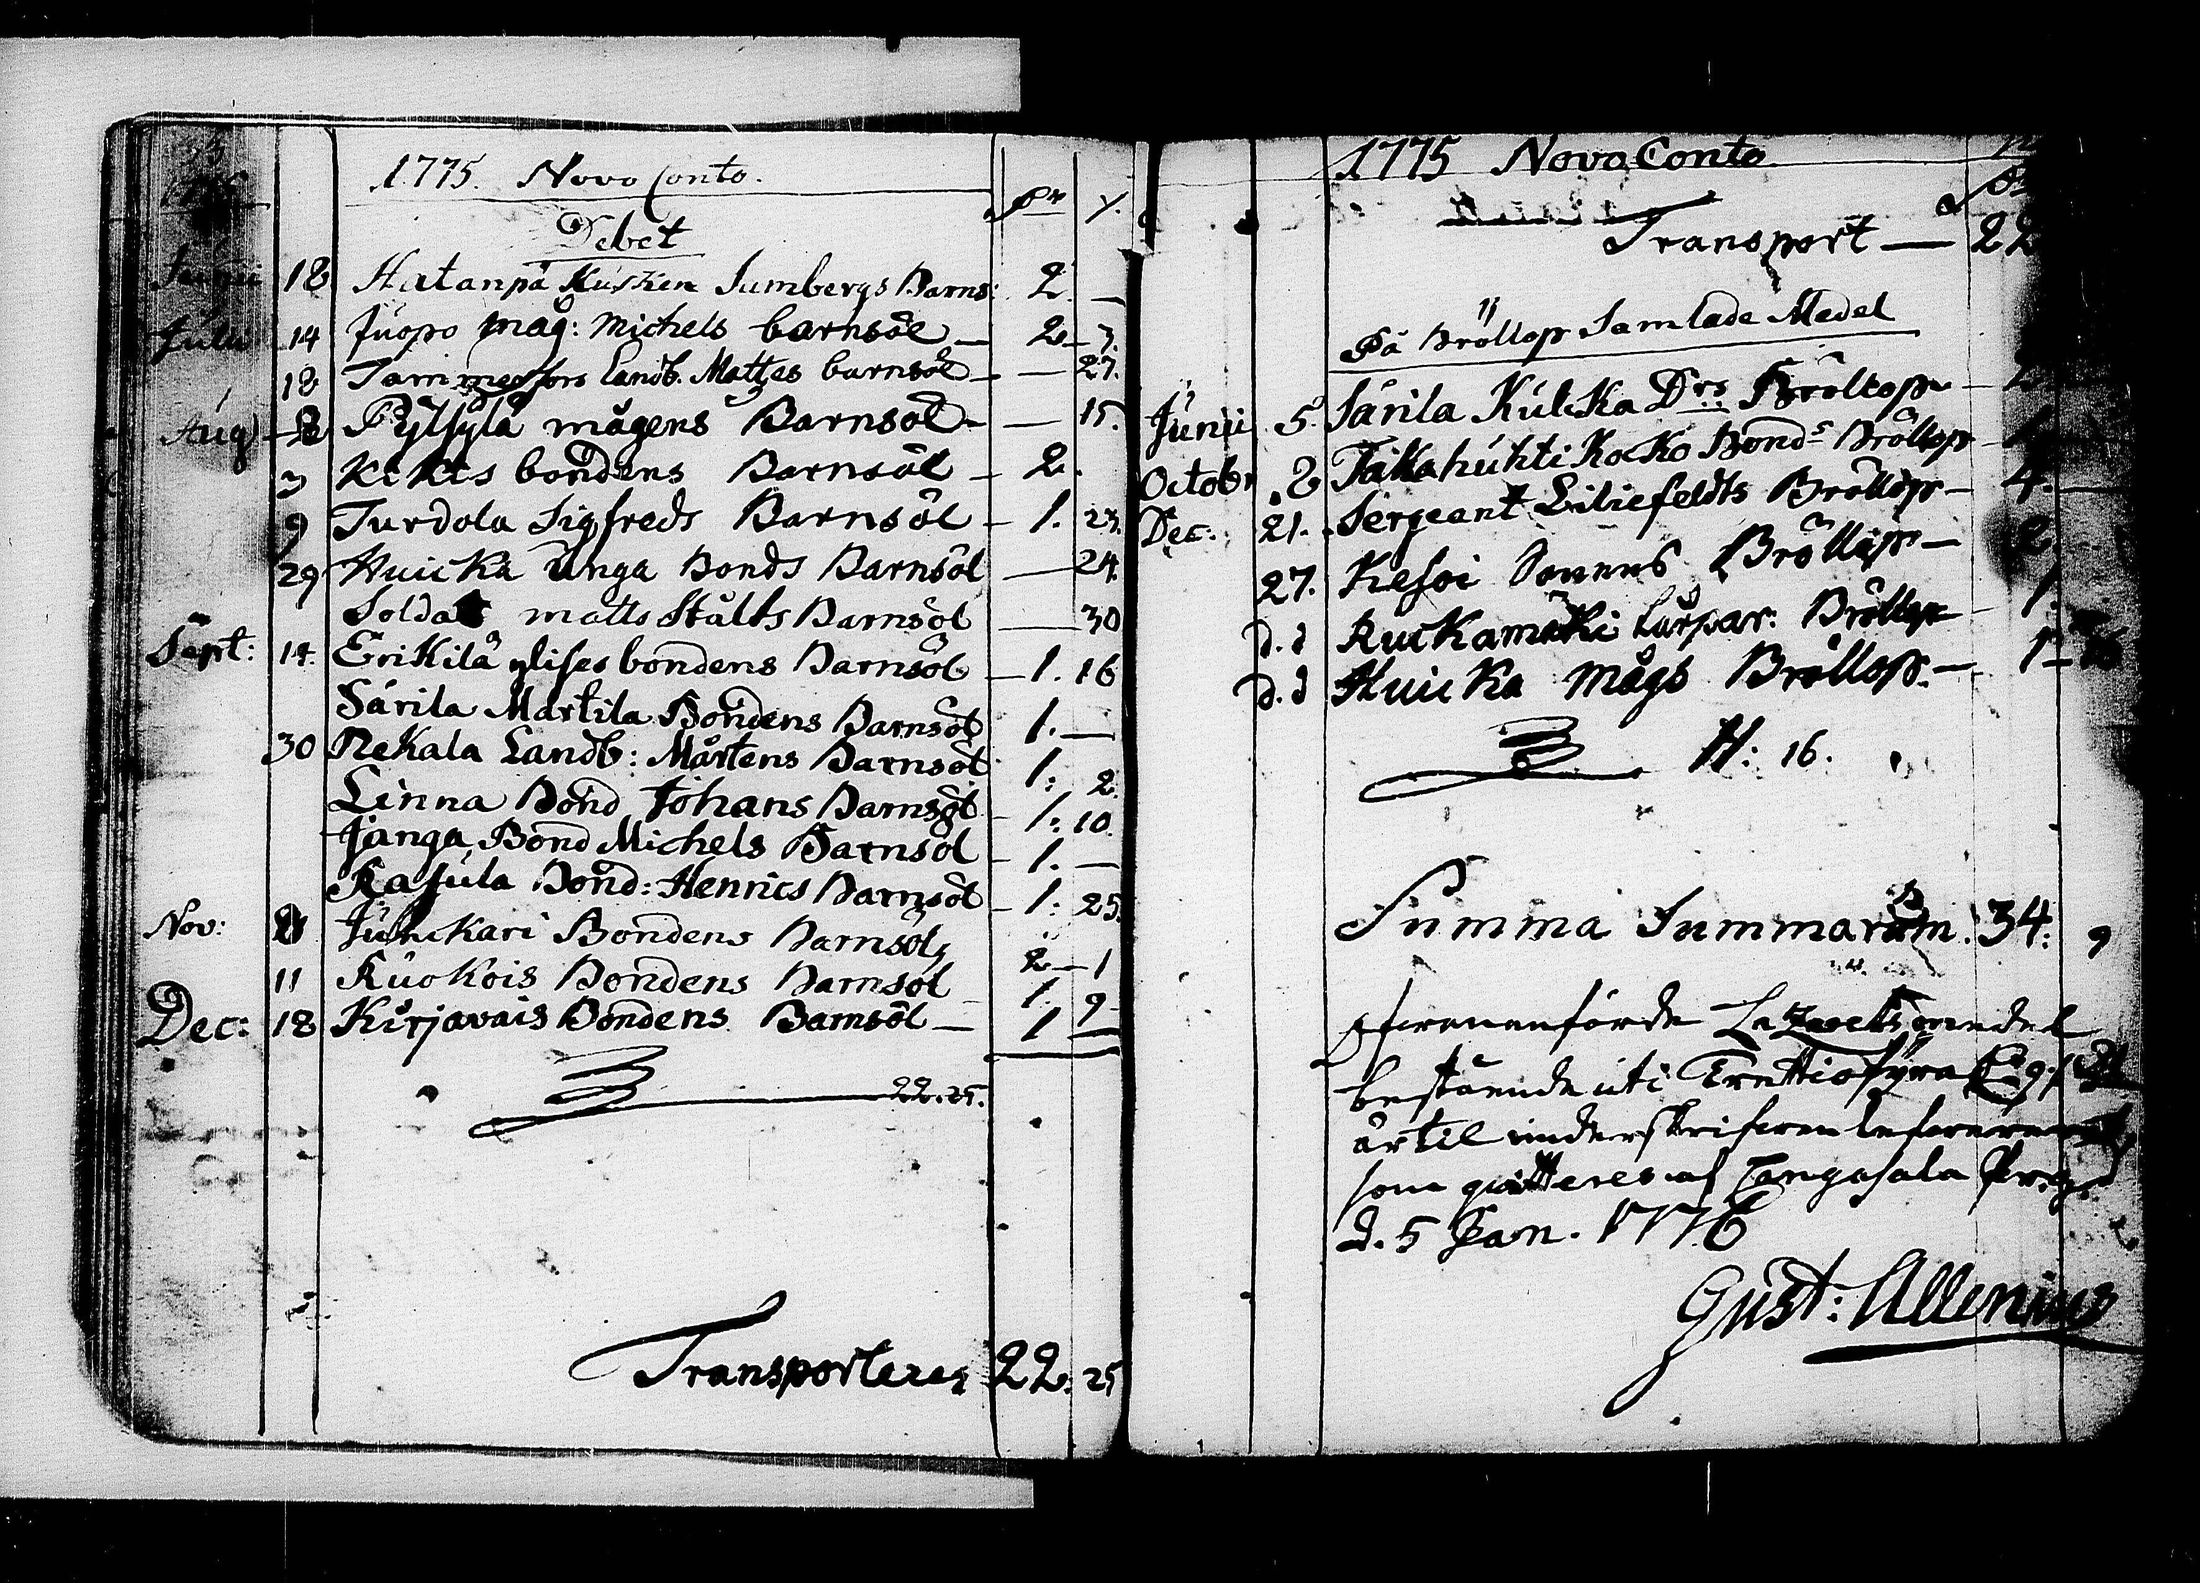 1775. Novo Conto.
Debet
Junii 18 Hatanpä Kusken Sumbergs Barns: 2. —
Julii 14 Juopo måg: Michels barnsöl — 2 — 7.
18 Tammerfors Landb. Mattes barnsöl — — 27.
Aug 2 Pyltylä mågens Barnsöl — — 15.
3 Kikis bondens Barnsöl — 2.
9 Turdola Sigfreds Barnsöl — 1. 23.
29 Huicka unga Bonds Barnsöl — 24.
Soldat matts Stålts Barnsöl — 30
Sept: 14. Erikilä bondens Barnsöl — 1. 16
Särila Martila Bondens Barnsöl 1. —
30 Nekala Landb: Mårtens Barnsöl 1: 2.
Linna Bond Johans Barnsöl 1: 10.
Janga Bond Michels Barnsöl — 1. —
Rasula Bond: Henrics Barnsöl — 1: 25.
Nov: Junckari Bondens Barnsöl 2 — 1
11 Ruokois Bondens Barnsöl 1. 9
Dec: 18 Kirjavais Bondens Barnsöl — 1 —
22. 25.
Transporteres 22: 25
1775 Novo Conto
Transport — 22
På Bröllop Samlade Medel
Junii 5. Särila Kulcka Drs Bröllop —
Octobr 8 Takahuhti Kocko Bonds Bröllop
Dec: 21. Sergeant Liliefeldts Bröllop — 4. —
27. Kesoi Sonens Bröllop — 2.
d. d Ruckamäki Bröllop — 1.
d. d Huicka Mågs Bröllop. — 1 —
H: 16.
Summa Summarum. 34: 9
Lazarets medel
bestående uti Trettiofyra
är til underskrifven
som qvitteres af Cangasala
d. 5 Jan. 1776
Gust: Allenius